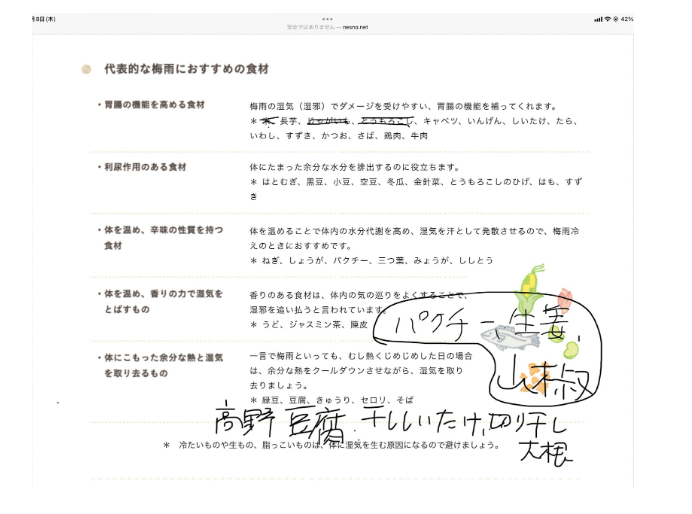 月8日(木)
安全ではありません — nesno.net
42%
代表的な梅雨におすすめの食材
・胃腸の機能を高める食材
梅雨の湿気（湿邪）でダメージを受けやすい、胃腸の機能を補ってくれます。
＊ 米、長芋、じゃがいも、とうもろこし、キャベツ、いんげん、しいたけ、たら、
いわし、すずき、かつお、さば、鶏肉、牛肉
・利尿作用のある食材
体にたまった余分な水分を排出するのに役立ちます。
＊ はとむぎ、黒豆、小豆、空豆、冬瓜、金針菜、とうもろこしのひげ、はも、すず
き
・体を温め、辛味の性質を持つ
食材
体を温めることで体内の水分代謝を高め、湿気を汗として発散させるので、梅雨冷
えのときにおすすめです。
＊ ねぎ、しょうが、パクチー、三つ葉、みょうが、ししとう
・体を温め、香りの力で湿気を
とばすもの
香りのある食材は、体内の気の巡りをよくすることで、
湿邪を追い払うと言われています。
＊ うど、ジャスミン茶、陳皮
パクチー、生姜、
山椒
・体にこもった余分な熱と湿気
を取り去るもの
一言で梅雨といっても、むし熱くじめじめした日の場合
は、余分な熱をクールダウンさせながら、湿気を取り
去りましょう。
＊ 緑豆、豆腐、きゅうり、セロリ、そば
高野豆腐、干ししいたけ、切り干し
大根
＊ 冷たいものや生もの、脂っこいものは、体に湿気を生む原因になるので避けましょう。